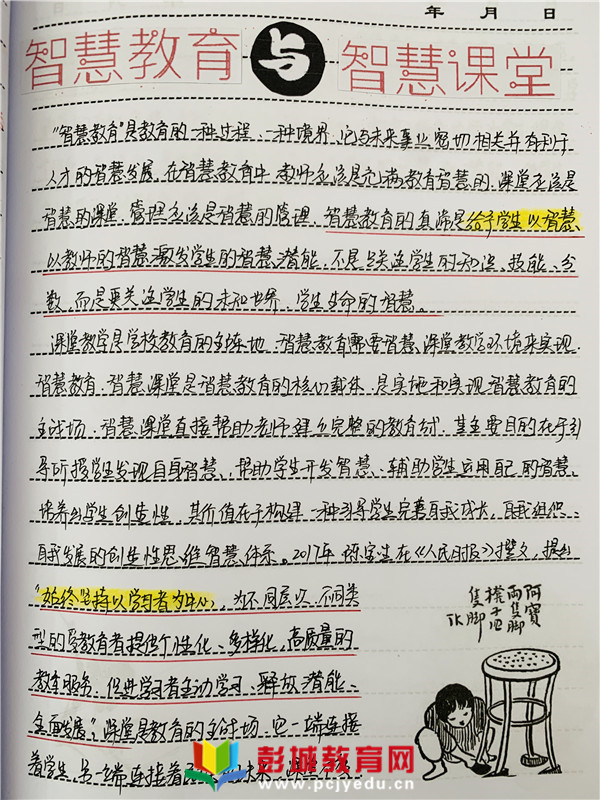 年 月 日
智慧教育与智慧课堂
“智慧教育”是教育的一种过程、一种境界,它与未来事业密切相关并有利于
人才的智慧发展。在智慧教育中,教师应该是充满教育智慧的,课堂应该是
智慧的课堂,管理应该是智慧的管理。智慧教育的真谛是给予学生以智慧,
以教师的智慧激发学生的智慧潜能,不是只关注学生的知识、技能、分
数,而是更关注学生的未知世界、学生生命的智慧。
课堂教学是学校教育的主阵地,智慧教育需要智慧课堂教学环境来实现
智慧教育,智慧课堂是智慧教育的核心载体,是实施和实现智慧教育的
主战场。智慧课堂直接帮助老师建立完整的教育,其主要目的在于引
导学生发现自身智慧,帮助学生开发智慧,辅助学生运用自己的智慧,
培养出学生创造性,其价值在于构建一种引导学生完善自我成长、自我组织、
自我发展的创造性思维智慧体系。2017年,陈宝生在《人民日报》撰文,提出
“始终坚持以学习者为中心,为不同层次、不同类
型的受教育者提供个性化、多样化、高质量的
教育服务,促进学习者主动学习、释放潜能、
全面发展”。课堂是教育的主战场,它一端连接
着学生,另一端连接着民族的未来,
阿寶
兩隻脚
櫈子四
隻脚
TK
彭城教育网
www.pcjyedu.cn